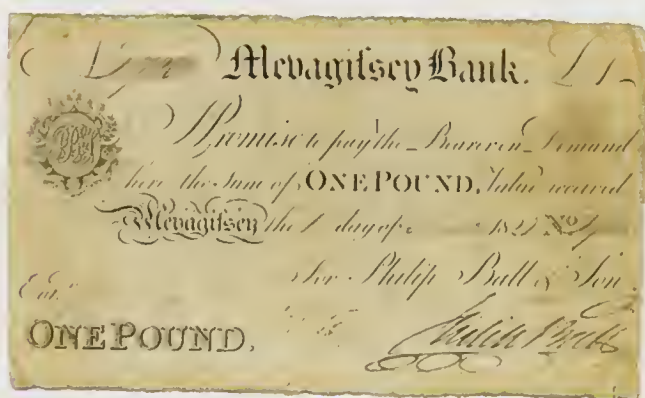 Mevagiſsey Bank. £1
I Promise to pay the Bearer on Demand
here the Sum of ONE POUND, Value received
Mevagiſsey the 1 day of 182 No
For Philip Ball & Son
Ent.
ONE POUND. Philip Ball